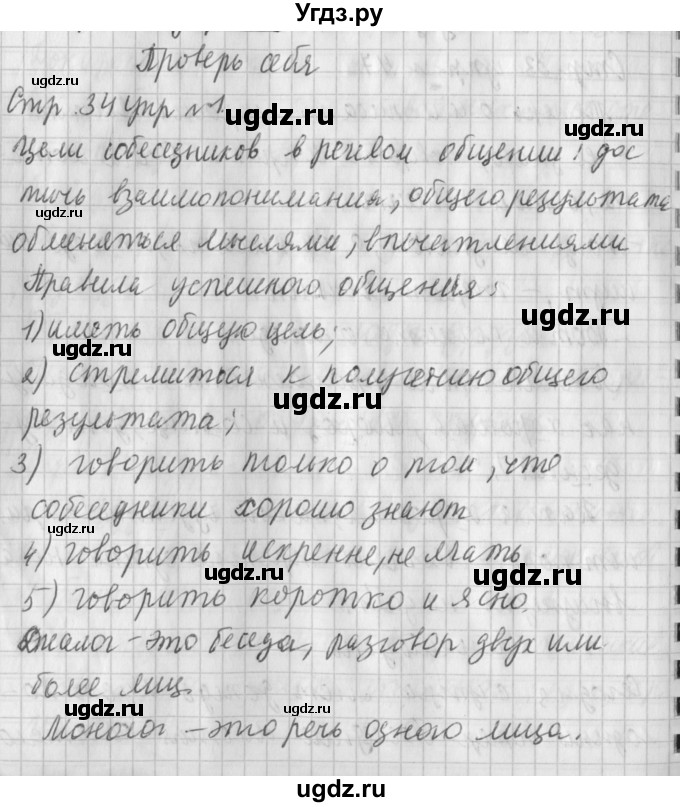 Угдз.ру
Проверь себя
Стр 34 упр №1
Цели собеседников в речевом общении: дос
тичь взаимопонимания, общего результата
обменяться мыслями, впечатлениями
Правила успешного общения:
1) иметь общую цель;
2) стремиться к получению общего
результата;
3) говорить только о том, что
собеседники хорошо знают
4) говорить искренне, не лгать.
5) говорить коротко и ясно.
Диалог - это беседа, разговор двух или
более лиц.
Монолог - это речь одного лица.
ugdz.ru
ugdz.ru
ugdz.ru
ugdz.ru
ugdz.ru
ugdz.ru
ugdz.ru
ugdz.ru
ugdz.ru
ugdz.ru
ugdz.ru
ugdz.ru
ugdz.ru
ugdz.ru